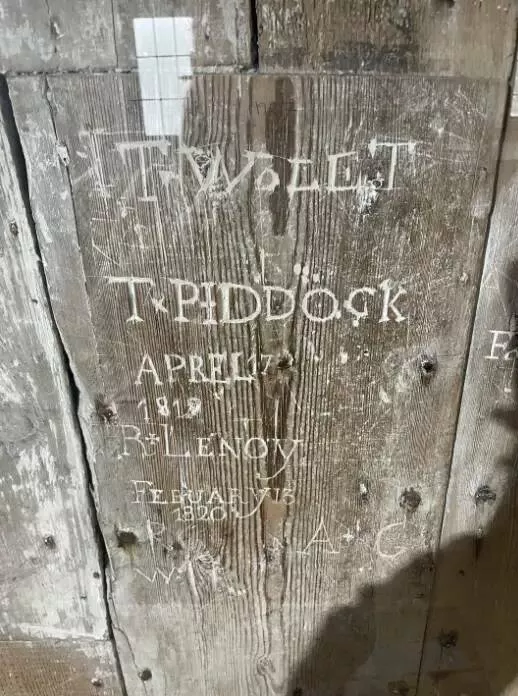 T. WOLET
T x PIDDOCK
APREL 17
1819
R + LENOY
FEBUARY 13
1820
R
A + C
W